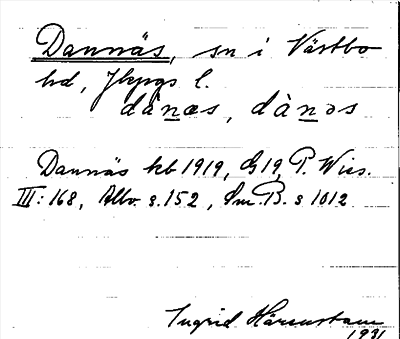 Dannäs, sn i Västbo
hd, Jkpgs l.
dànæs, dànəs
Dannäs kb 1919, G 19, P. Wies.
III: 168, Allvo s. 152, Sm. B. s 1012
Ingrid Härenstam
1931